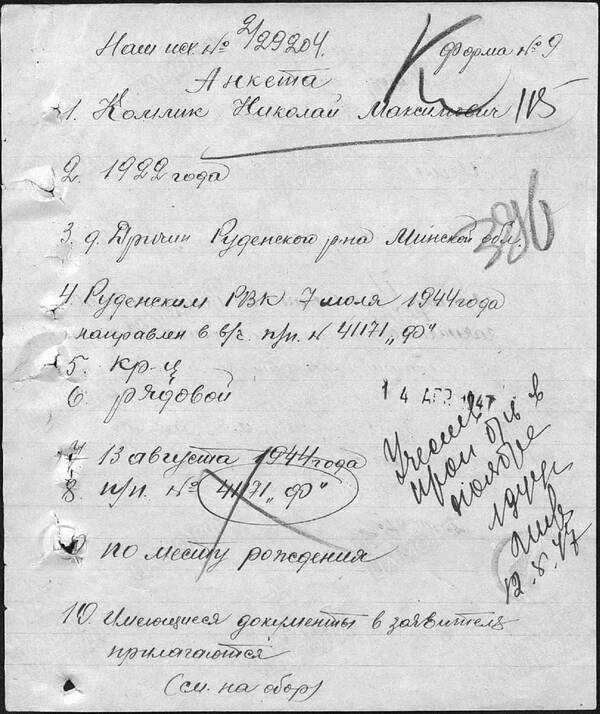 Наш исх № 2/29204. Форма № 9
К
Анкета
1. Комлик Николай Максимович 115
2. 1922 года
396
3. д. Причин Руденского р-на Минской обл.
4. Руденским РВК 7 июля 1944 года
направлен в в/ч. п/п. № 41171 „Ф"
5. кр-ц
6. рядовой
14 АПР 1947
7. 13 августа 1944 года
8. п/п. № 41171 „Ф"
9. по месту рождения
10. Имеющиеся документы в заявителя
прилагаются
(см. на обор)
Учесть
проп б/в в
ноябре
12.8.47